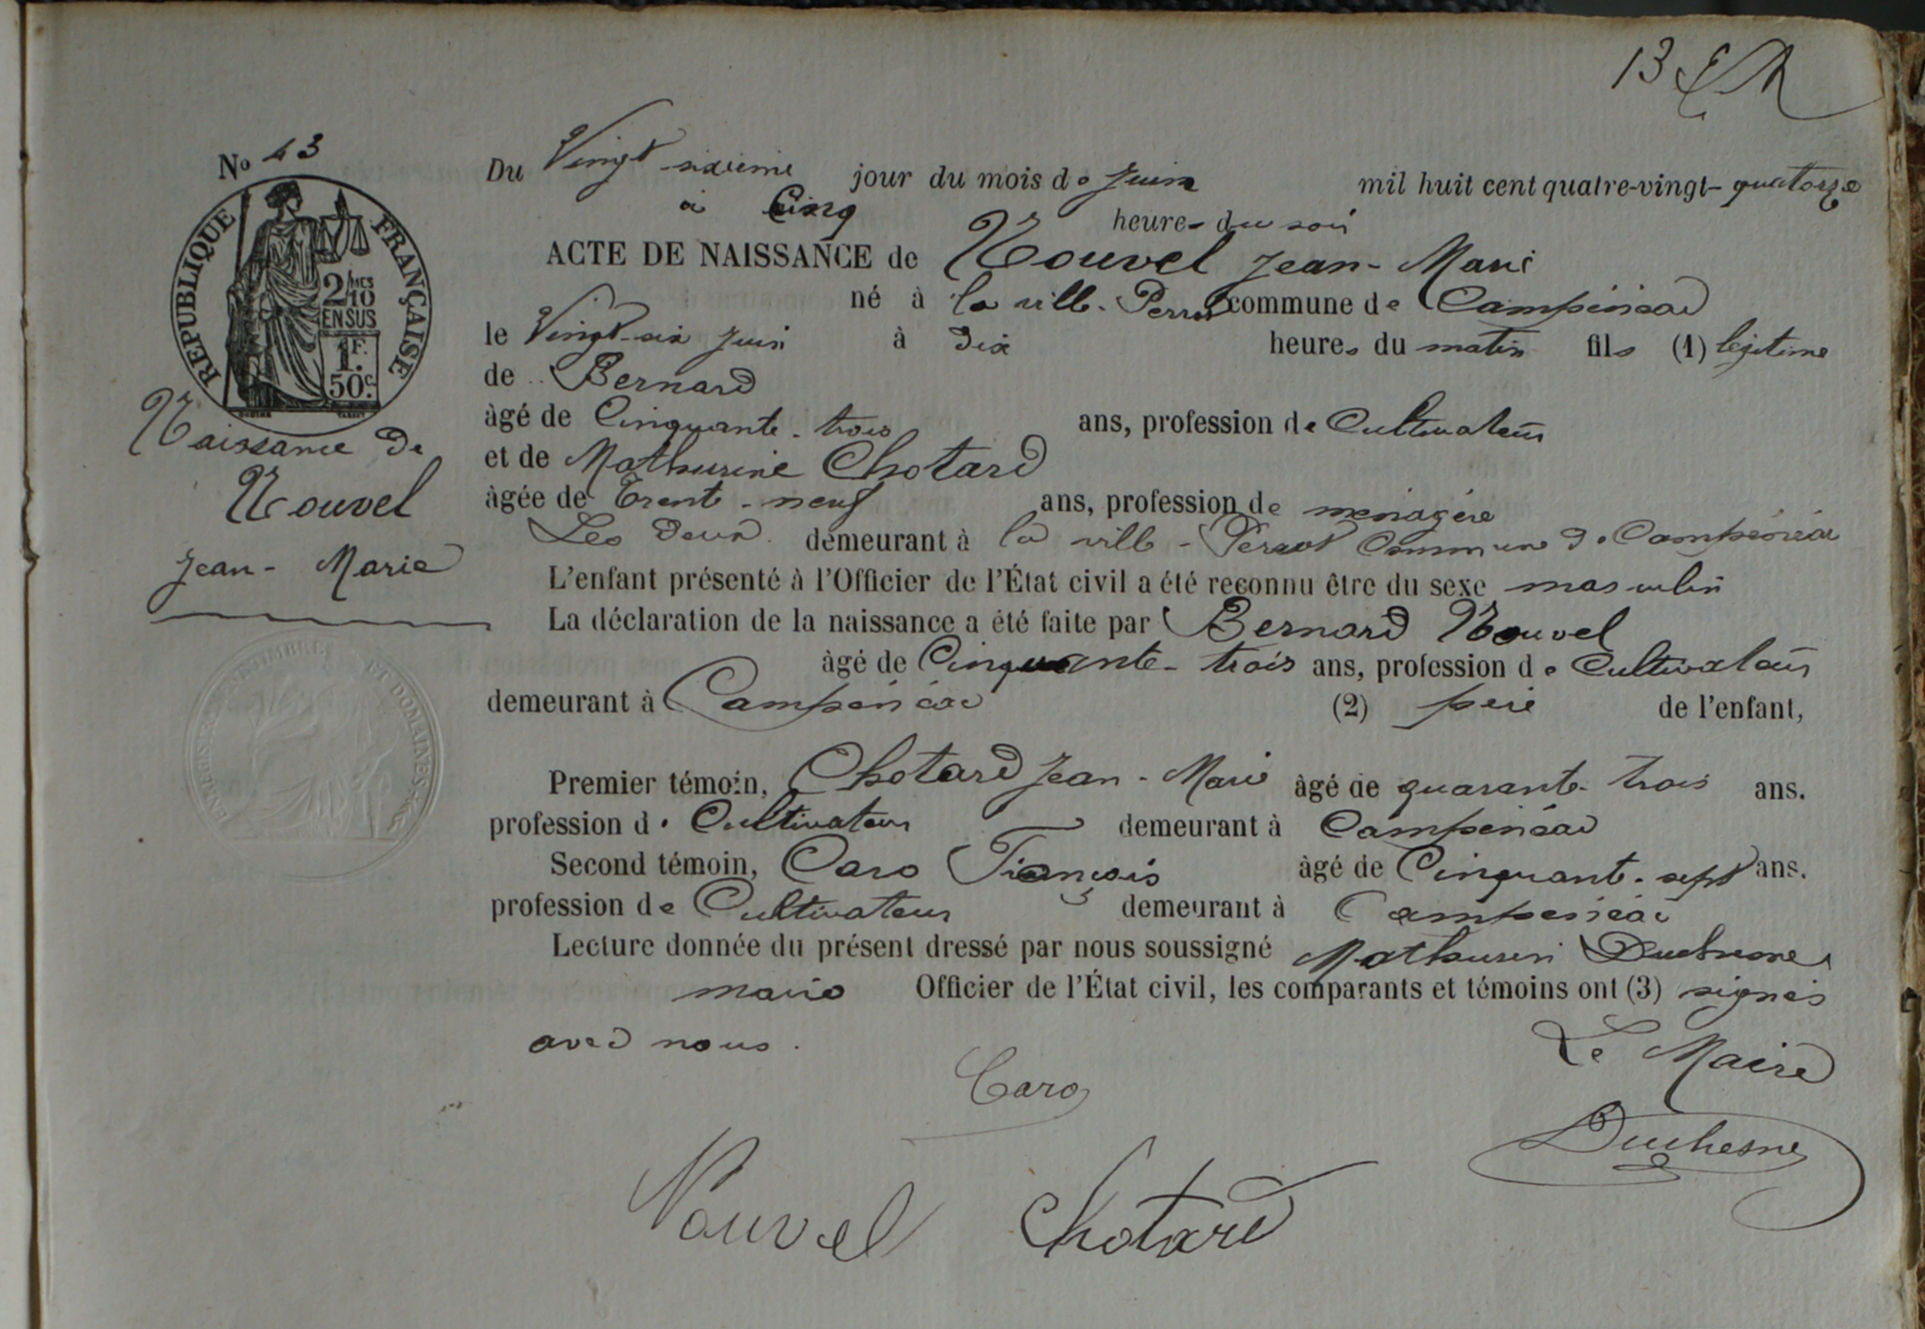 13
No 43
RÉPUBLIQUE FRANÇAISE
2/10MES
EN SUS
1F.
50c.
Naissance de
Nouvel
Jean-Marie
Du Vingt-sixième jour du mois de Juin mil huit cent quatre-vingt-quatorze
à Cinq heures du soir
ACTE DE NAISSANCE de Nouvel Jean-Marie
né à la ville-Perrot commune de Campénéac
le Vingt-six Juin à dix heures du matin fils (1) légitime
de Bernard
âgé de Cinquante-trois ans, profession de Cultivateur
et de Mathurine Chotard
âgée de Trente-neuf ans, profession de ménagère
Les deux demeurant à la ville-Perrot Commune de Campénéac
L'enfant présenté à l'Officier de l'État civil a été reconnu être du sexe masculin
La déclaration de la naissance a été faite par Bernard Nouvel
âgé de Cinquante-trois ans, profession de Cultivateur
demeurant à Campénéac (2) père de l'enfant,
Premier témoin, Chotard Jean-Marie âgé de quarante-trois ans.
profession de Cultivateur demeurant à Campénéac
Second témoin, Caro François âgé de Cinquante-sept ans.
profession de Cultivateur demeurant à Campénéac
Lecture donnée du présent dressé par nous soussigné Mathurin Duchesne
maire Officier de l'État civil, les comparants et témoins ont (3) signés
avec nous.
Le Maire
Caro
Duchesne
Nouvel Chotard